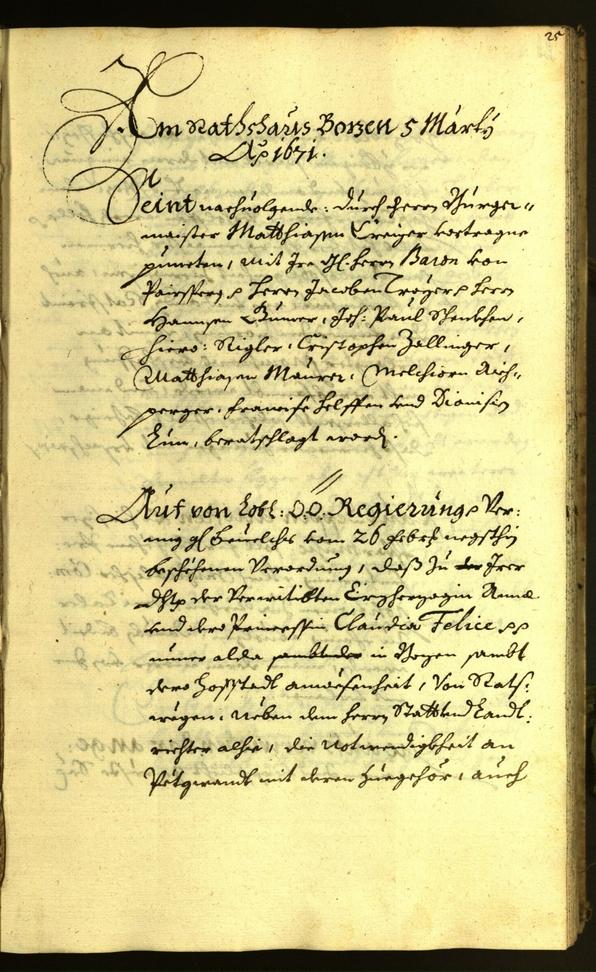 25
Am Rathshaus Bozen 5 Marty
Ao 1671.
Seint nachuolgende: durch Herrn Burger-
maister Matthiasen Creizer vortragne
puncten, mit Ire Gl: Herrn Baron von
Pairssperg p Herrn Jacoben Troyer p Herrn
Hannsen Gumer, Joh: Paul Schenkhen,
Hiero: Rigler, Cristophen Zallinger,
Matthiasen Maurer, Melchiorn Aich-
perger, Francisc Helffen vnd Dionisien
Kun, beratschlagt worden.
Auf von Lobl: O:Ö: Regierung p Ver:
mig gl beuelchs vom 26 Febr: negsthin
beschehenen Verordnung, daß zu der Irer
Dhtp der Verwitibten Erzherzogin Anna
vnd dero Princessin Claudia Felice pp
nuner alda sambt der in Bozen sambt
dero Hoffstadt anwesenheit, Von Stats:
wegen, neben dem Herrn Statt vnd Landt:
richter alhie, die Notwendigkheit an
Petgwandt mit deren Zuegehör, auch